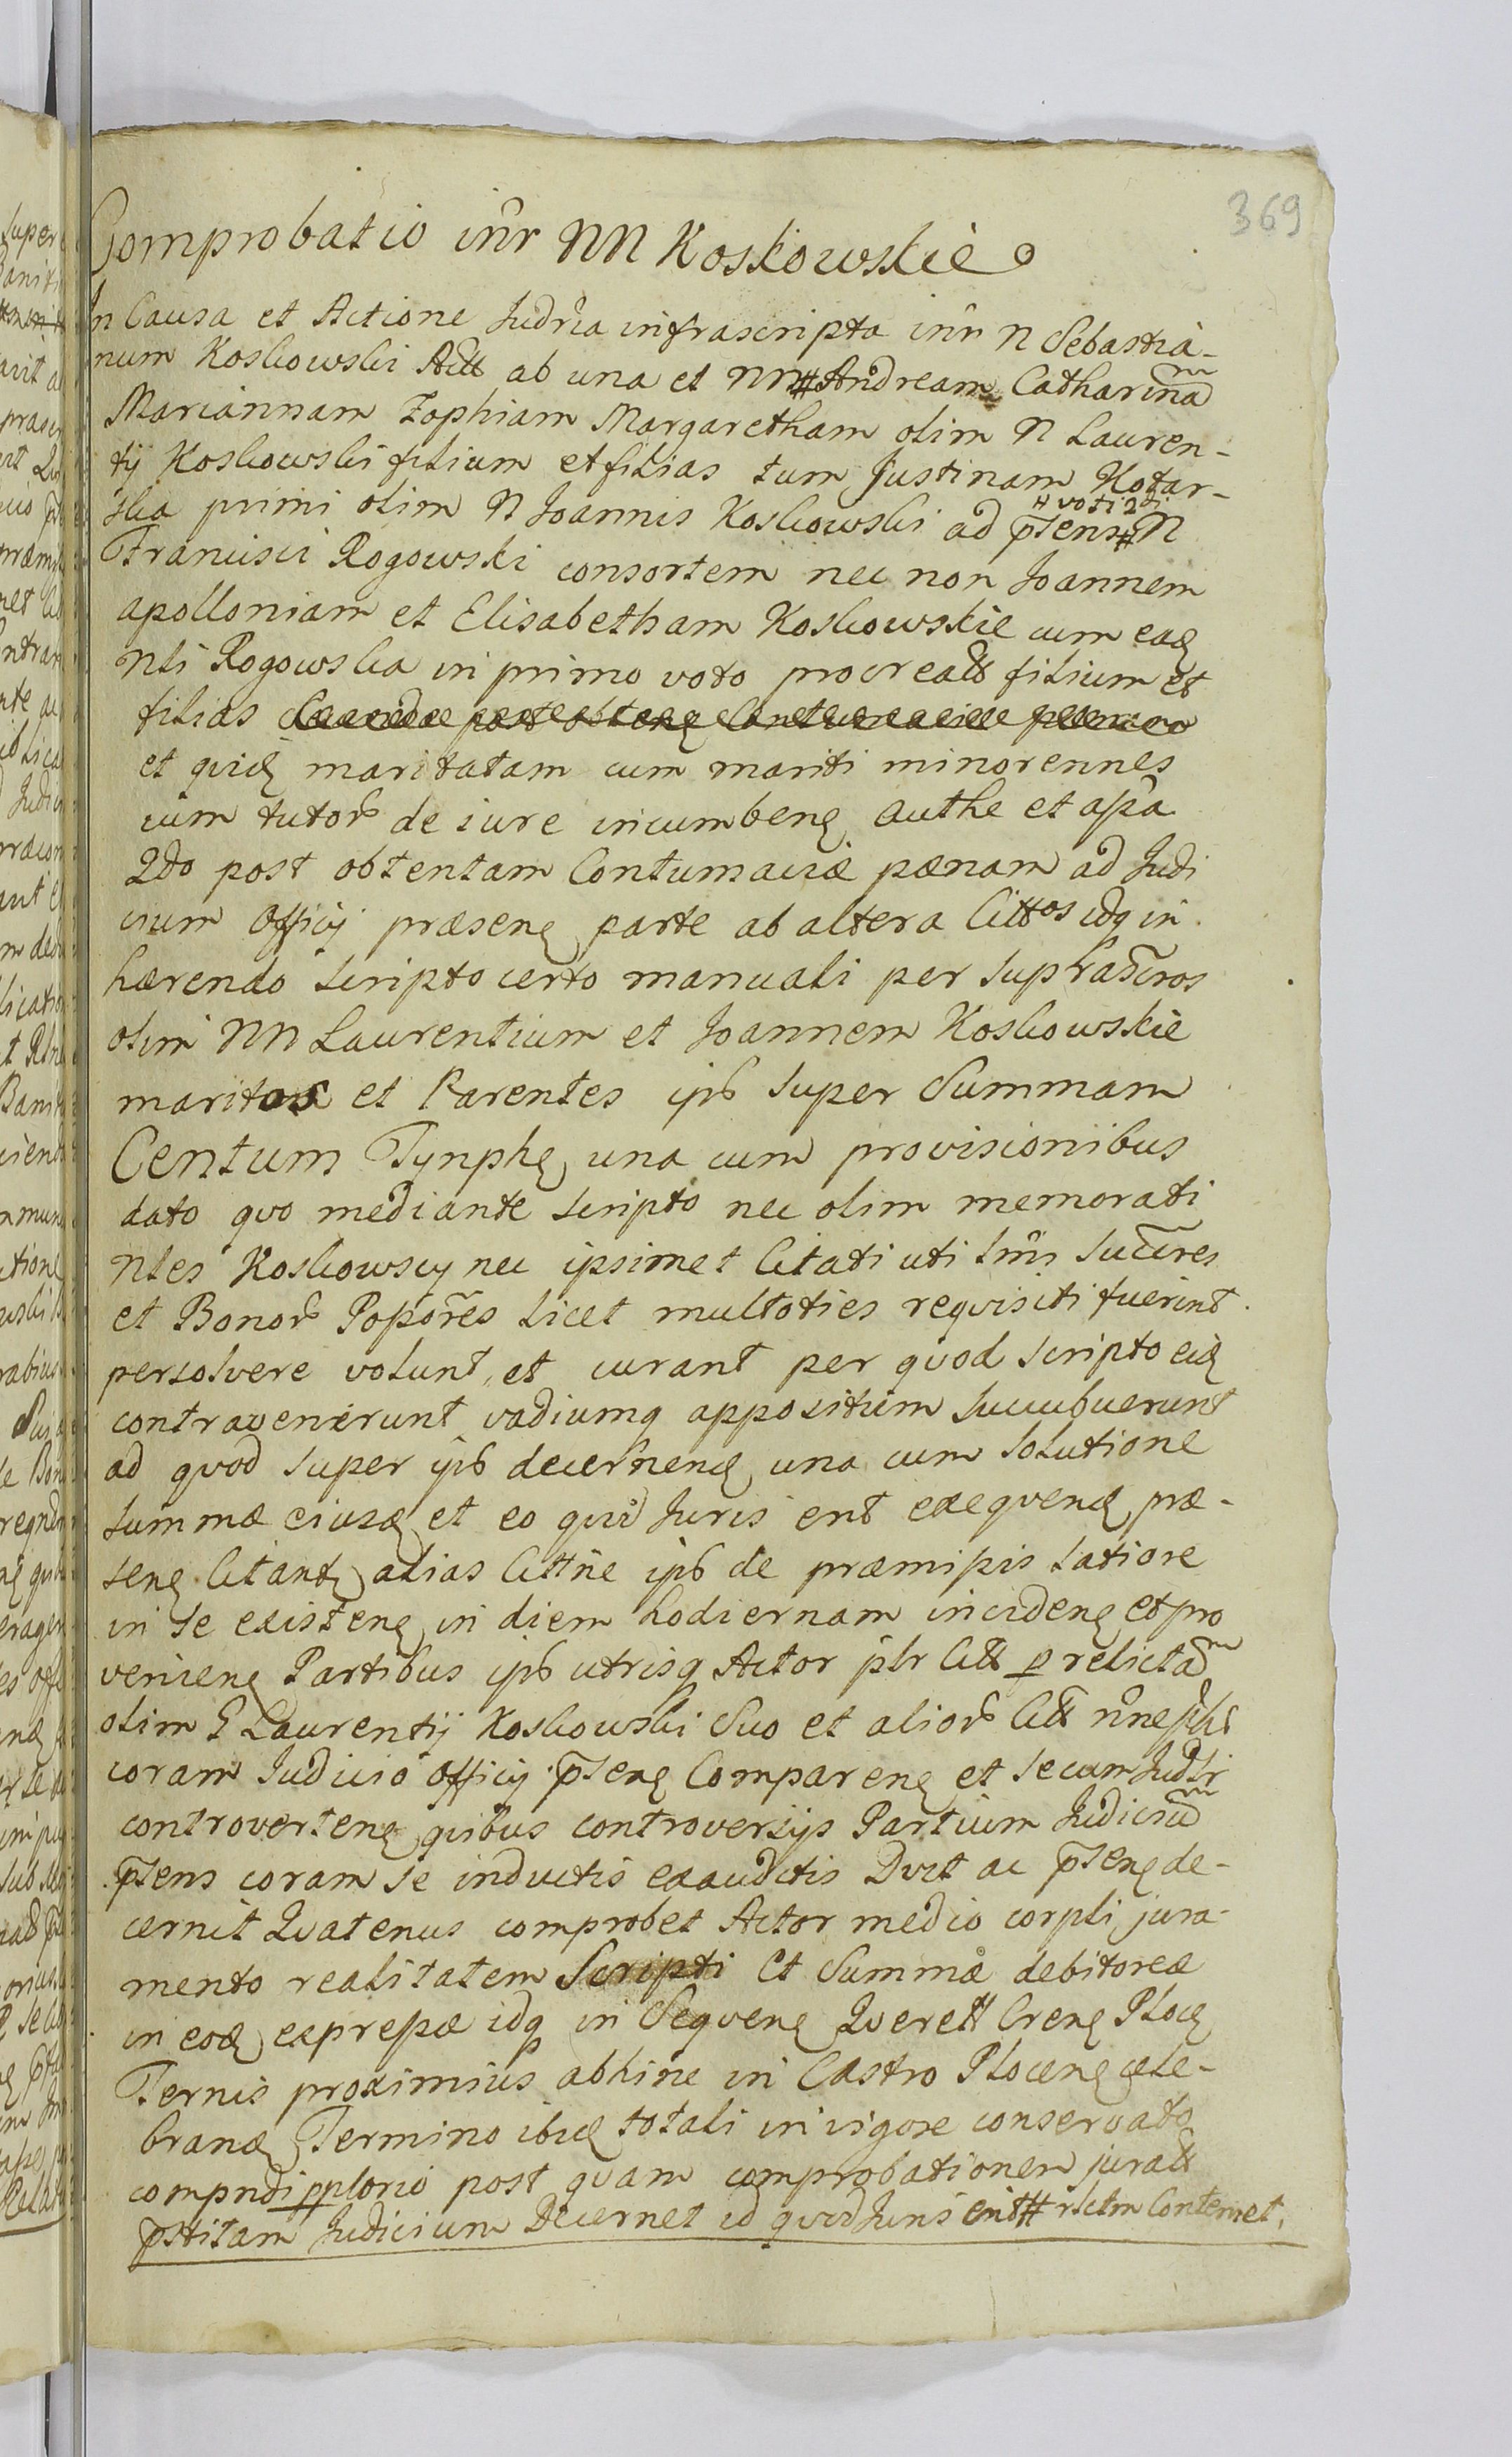 369
Comprobatio inr NN Koskowskie
In Causa et Actione Judria infrascripta inr N Sebastia-
num Koskowski Actt ab una et NN # Andream Catharinam
Mariannam Zophiam Margaretham olim N Lauren-
tij Koskowski filium et filias tum Justinam Kotar-
ska primi olim N Joannis Koskowski ad pñsens # N
# voti 2di
Francisci Rogowski consortem nec non Joannem
apolloniam et Elisabetham Koskowskie cum eadq
Nli Rogowska in primo voto procreatt filium et
filias
et quidq maritatam cum mariti minorennes
cum tutor de iure incumbenq authe et assa
2do post obtentam Contumaciæ pænam ad Judi
cium Officij præsenq parte ab altera Cittos idq in
hærendo scripto certo manuali per suprascros
olim NN Laurentium et Joannem Koskowskie
maritos et Parentes ipb super Summam
Centum Tynphq una cum provisionibus
dato quo mediante scripto nec olim memorati
Nles Koskowscy nec ipsimet Citati uti lmi sucres
et Bonor Popores licet multoties requisiti fuerint
persolvere volunt et curant per quod scripto eidq
contravenerunt vadiumq appositum succubuerunt
ad quod super ipb decernendq una cum solutione
summæ eiusdq et eo quid Juris erit exequendq præ-
senq Citantq alias Cittne ipb de præmissis latiore
in se existenq in diem hodiernam incidenq et pro
venienq Partibus ipb utrisq Actor plr Citt p relictam
olim G Laurentij Koskowski Suo et alior Citt nne plr
coram Judicio Officij pñsenq Comparenq et secum Judlr
controvertenq quibus controversijs Partium Judicium
pñsens coram se inductis exauditis Dvit ac pñsenq de-
cernit Quatenus comprobet Actor medio corpli jura-
mento realitatem Scripti et Summæ debitoreæ
in eodq expressæ idq in Sequenq Querell Crenq Plocq
Ternis proximius abhinc in Castro Plocenq cele-
brandq Termino ibidq totali in vigore conservato
compndi pplorio post quam comprobationem juratt
pñstitam Judicium Decernet id quod Juris erit # rlctm Contemet.